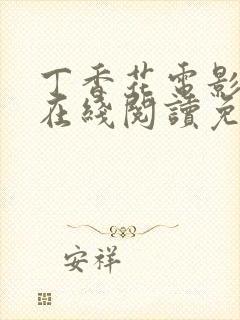 丁香花電影
在綫閱讀免
安祥